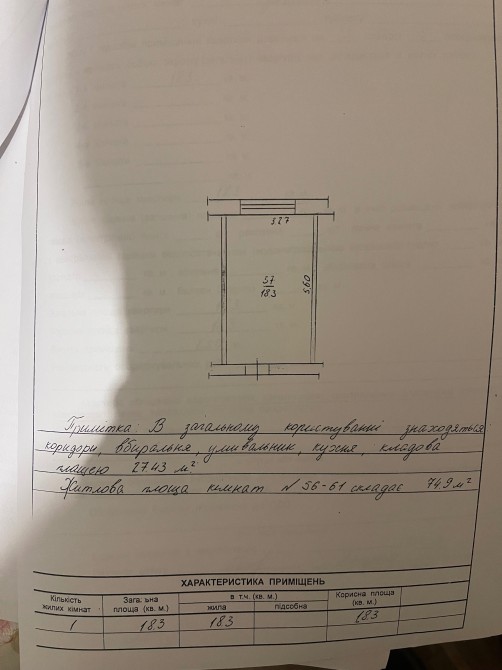 3.27
57
18.3
5,60
Примітка: В загальному користуванні знаходяться
коридори, вбиральня, умивальник, кухня, кладова
площею 27.43 м²
Житлова площа кімнат №56-61 складає 74.9 м²
ХАРАКТЕРИСТИКА ПРИМІЩЕНЬ
Кількість жилих кімнат Загальна площа (кв. м.) в т.ч. (кв. м.) Корисна площа (кв. м.)
жила підсобна
1 18.3 18.3 18.3